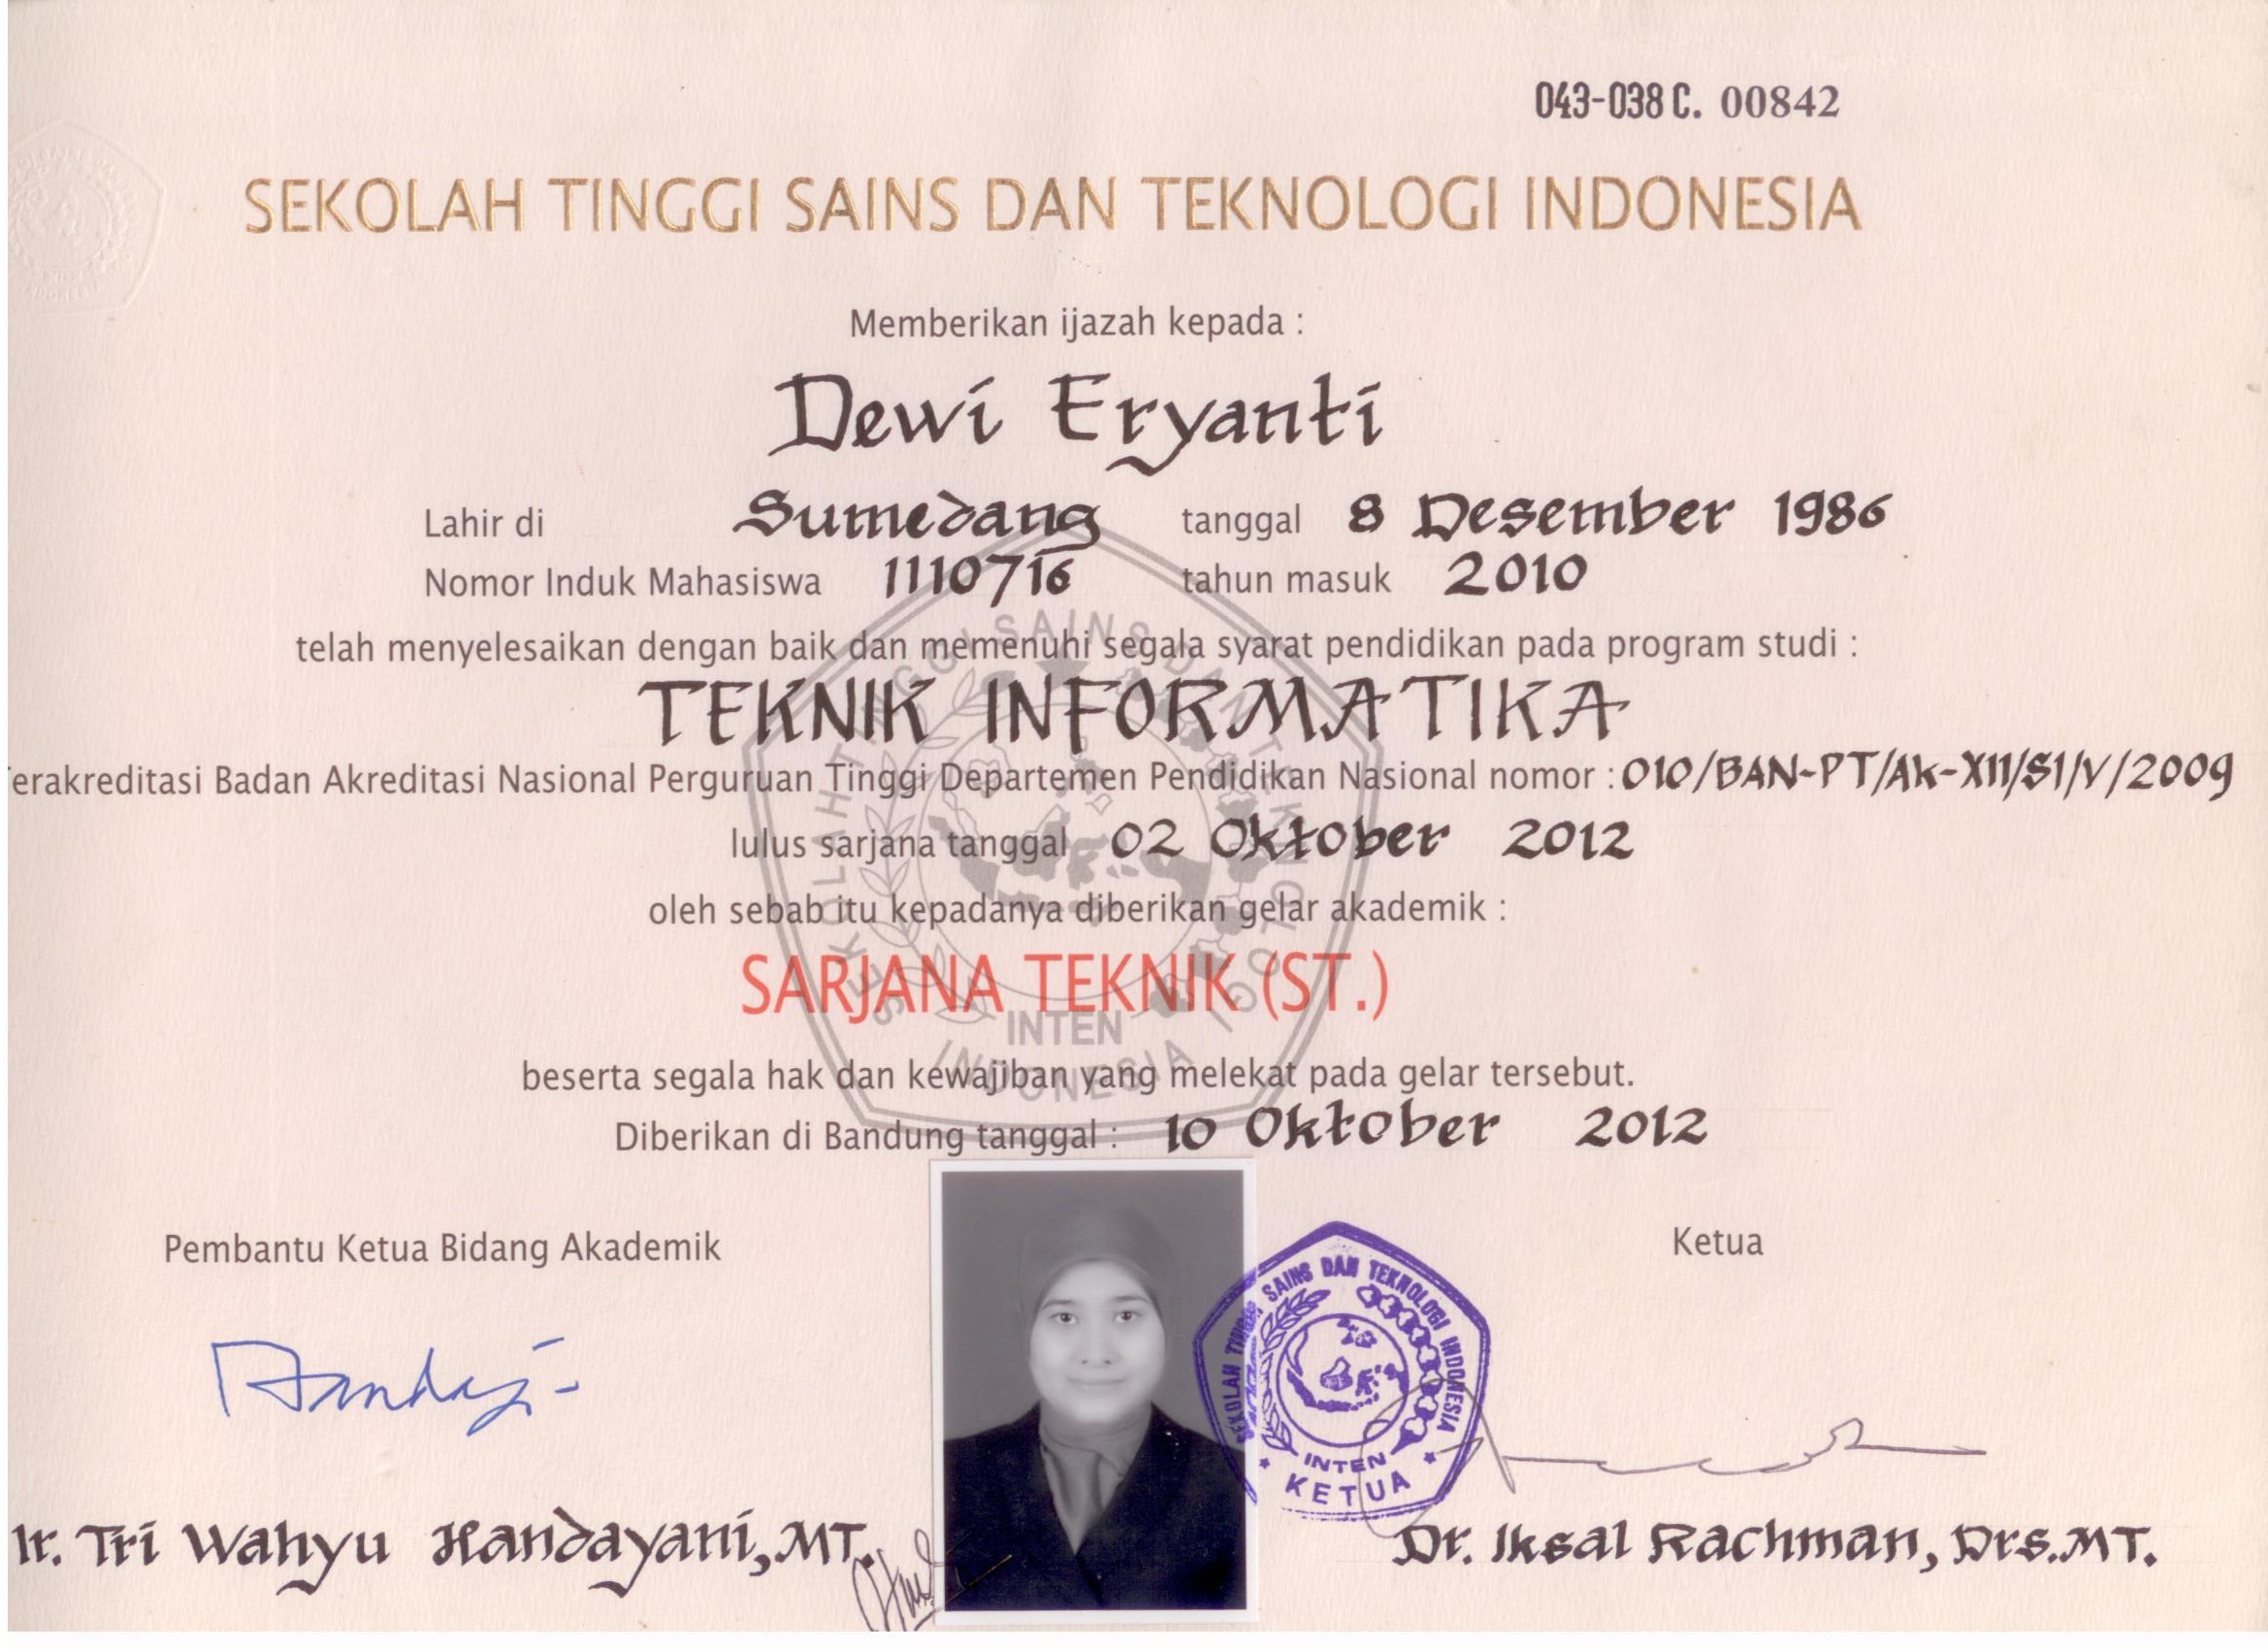 043-038 C. 00842
SEKOLAH TINGGI SAINS DAN TEKNOLOGI INDONESIA
Memberikan ijazah kepada :
Dewi Eryanti
Lahir di Sumedang tanggal 8 Desember 1986
Nomor Induk Mahasiswa 1110716 tahun masuk 2010
telah menyelesaikan dengan baik dan memenuhi segala syarat pendidikan pada program studi :
TEKNIK INFORMATIKA
erakreditasi Badan Akreditasi Nasional Perguruan Tinggi Departemen Pendidikan Nasional nomor : 010/BAN-PT/Ak-XII/S1/V/2009
lulus sarjana tanggal 02 Oktober 2012
oleh sebab itu kepadanya diberikan gelar akademik :
SARJANA TEKNIK (ST.)
SEKOLAH TINGGI SAINS DAN TEKNOLOGI INDONESIA
INTEN
beserta segala hak dan kewajiban yang melekat pada gelar tersebut.
Diberikan di Bandung tanggal : 10 Oktober 2012
Pembantu Ketua Bidang Akademik
Ketua
SEKOLAH TINGGI SAINS DAN TEKNOLOGI INDONESIA
INTEN
KETUA
Ir. Tri Wahyu Handayani, MT.
Dr. Iksal Rachman, Drs. MT.